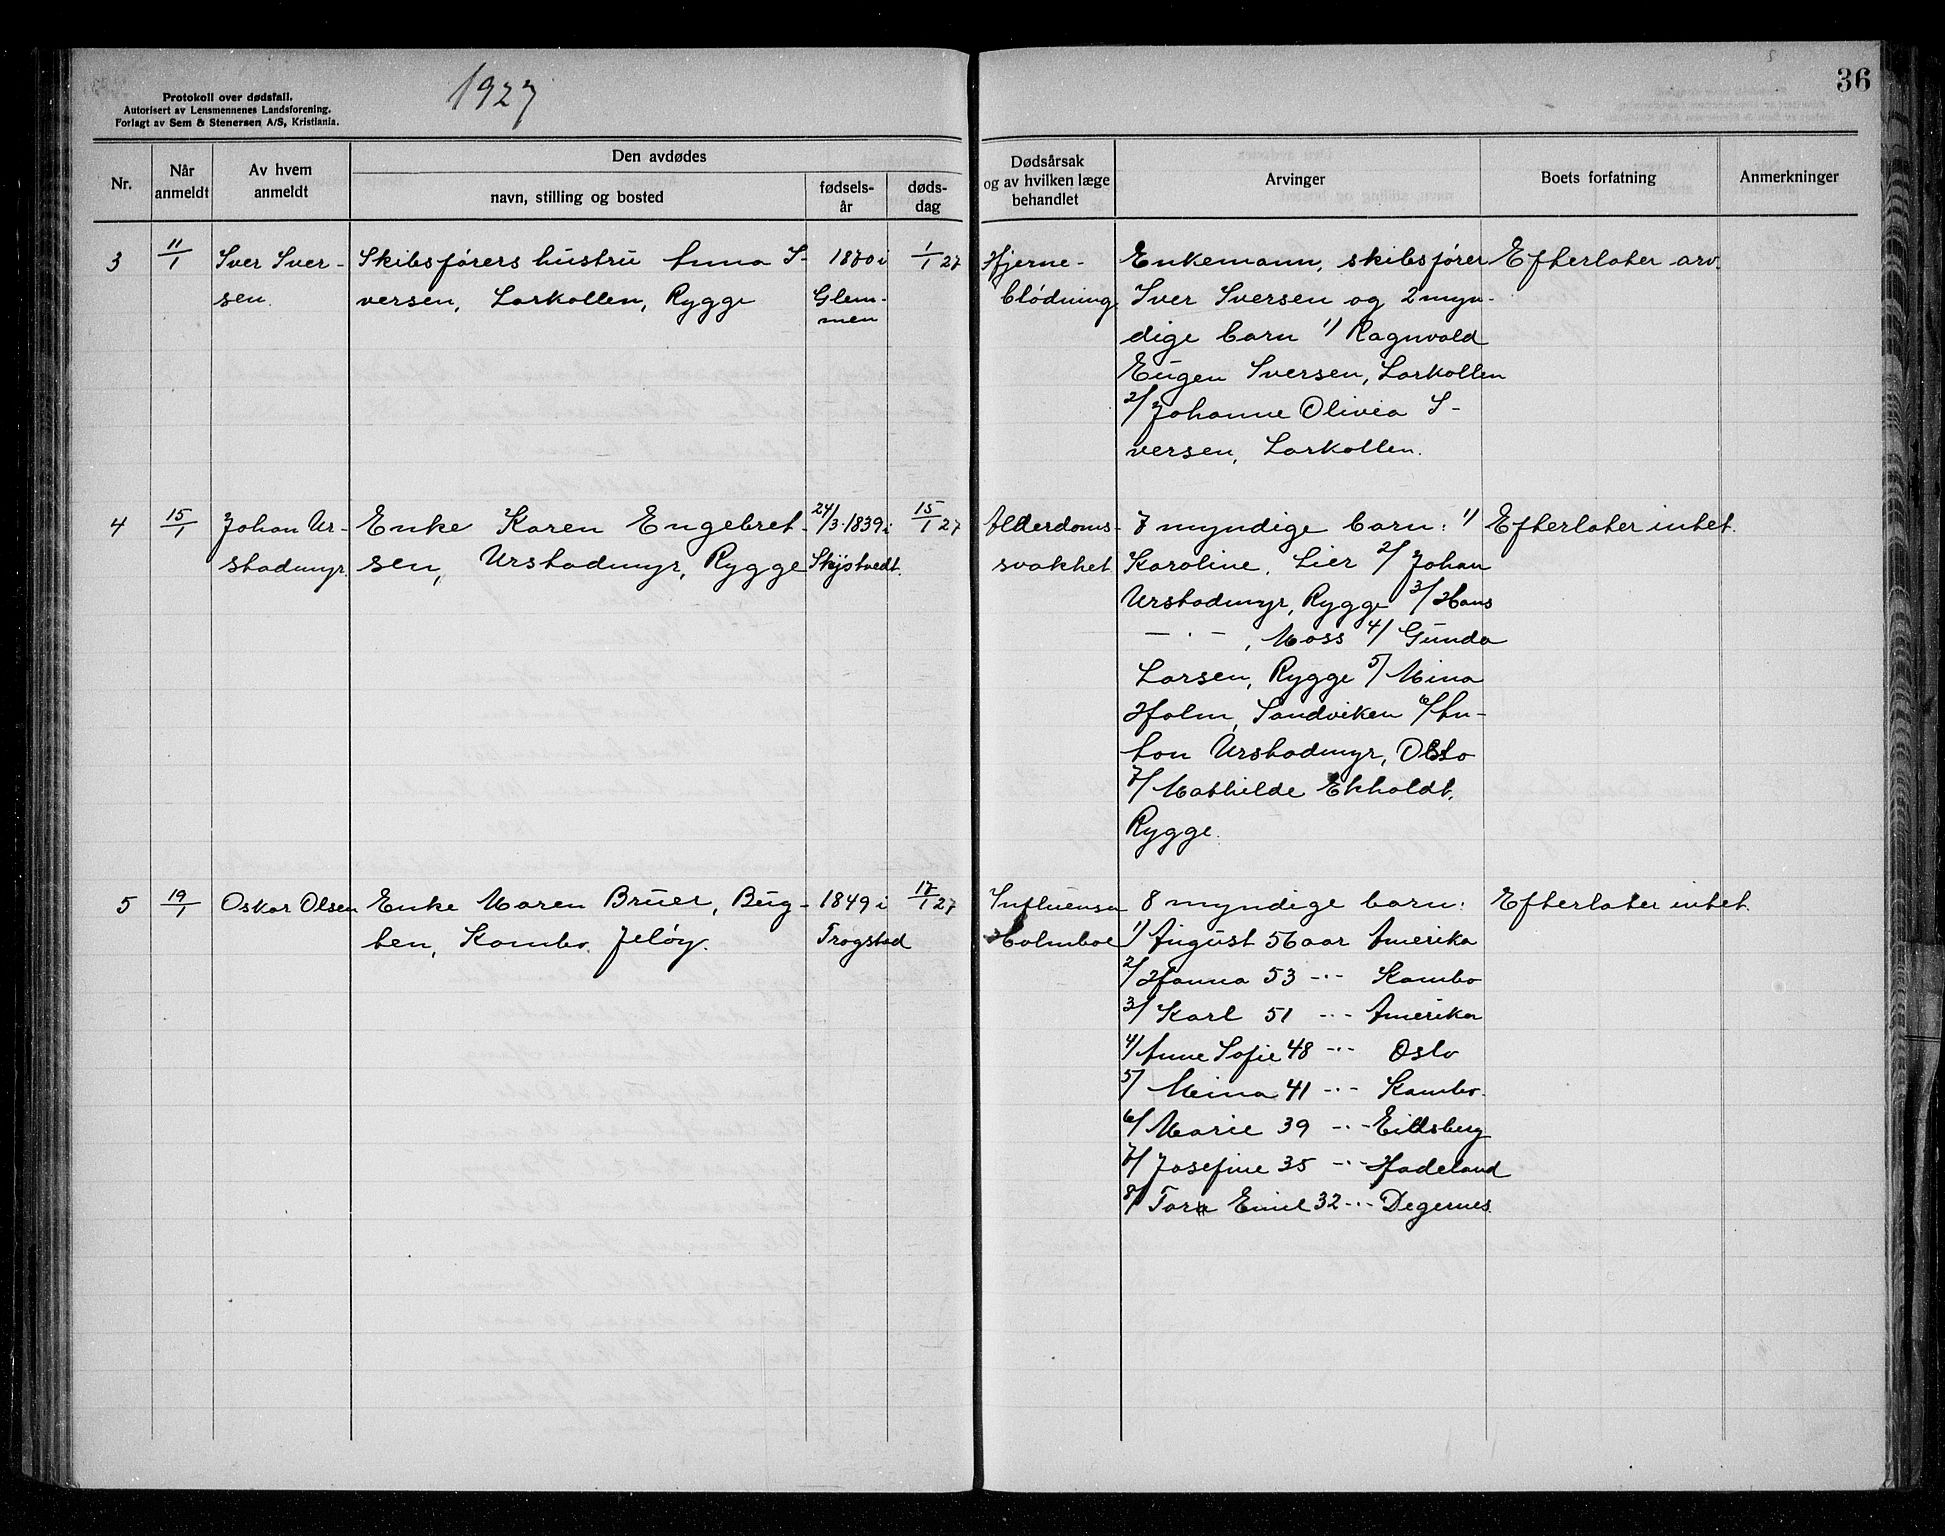 1927
36
Protokoll over dødsfall.
Autorisert av Lensmennenes Landsforening.
Forlagt av Sem & Stenersen A/S, Kristiania.
Nr.
Når anmeldt
Av hvem anmeldt
Den avdødes
navn, stilling og bosted
fødsels-år
døds-dag
Dødsårsak
og av hvilken læge
behandlet
Arvinger
Boets forfatning
Anmerkninger
3
11/1
Iver Iver-
sen.
Skibsførers hustru Anna I-
versen, Larkollen, Rygge
1870 i
Glem-
men
1/1 27
Hjerne-
blödning
Enkemann, skibsfører
Iver Iversen og 2 myn-
dige barn 1/ Ragnvald
Eugen Iversen, Larkollen
2/ Johanne Olivia I-
versen, Larkollen.
Efterlater arv.
4
15/1
Johan Ur-
stadmyr.
Enke Karen Engebret-
sen, Urstadmyr, Rygge
24/3-1839 i
Skjptvedt.
15/1 27
Alderdoms-
svakhet
7 myndige barn: 1/
Karoline, Lier 2/ Johan
Urstadmyr, Rygge 3/ Hans
— · — , Moss 4/ Gunda
Larsen, Rygge 5/ Mina
Holm, Sandviken 6/ An-
ton Urstadmyr, Oslo
7/ Mathilde Ekholdt,
Rygge.
Efterlater intet.
5
19/1
Oskar Olsen
Enke Maren Bruer, Byg-
ten, Kambo, Jeløy.
1849 i
Trøgstad
17/1 27
Influensa
Holmboe
8 myndige barn:
1/ August 56 aar Amerika
2/ Hanna 53 -·- Kambo
3/ Karl 51 -·- Amerika
4/ Anne Sofie 48 -·- Oslo
5/ Mina 41 -·- Kambo.
6/ Marie 39 -·- Eidsberg
7/ Josefine 35 -·- Hadeland
8/ Tora Emil 32 -·- Degernes.
Efterlater intet.